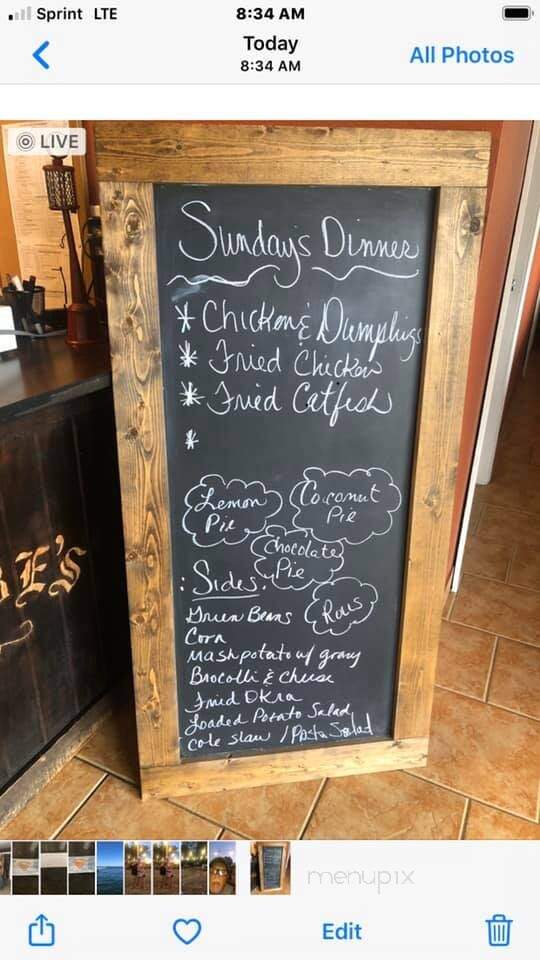 Sprint LTE
8:34 AM
Today
8:34 AM
All Photos
LIVE
Sunday's Dinner
* Chicken & Dumplings
* Fried Chicken
* Fried Catfish
*
Lemon Pie
Coconut Pie
Chocolate Pie
: Sides:
Rolls
Green Beans
Corn
Mashpotato w/ gravy
Brocolli & Cheese
Fried OKra
Loaded Potato Salad
Cole slaw / Pasta Salad
E'S
menupix
Edit